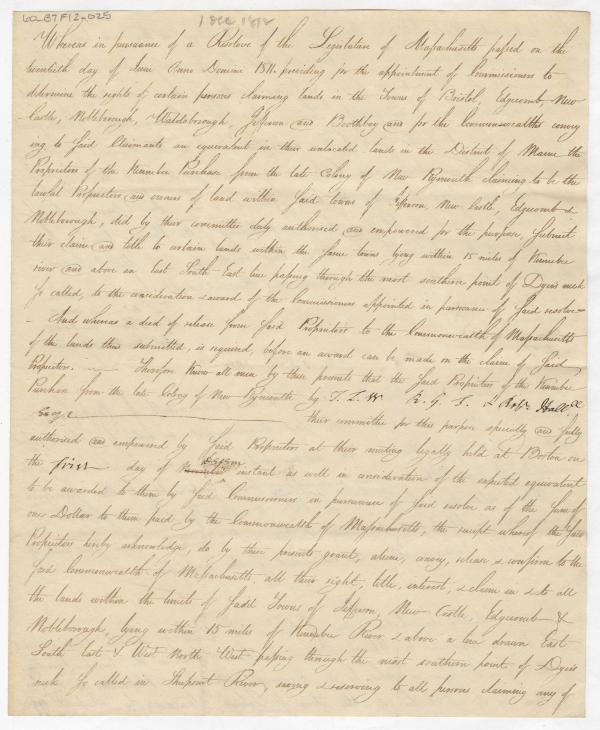 60-B7F12-025
1 Dec 1812
Whereas in pursuance of a Resolve of the Legislature of Massachusetts passed on the
twentieth day of June Anno Domini 1811 providing for the appointment of Commissioners to
determine the rights of certain persons claiming lands in the Towns of Bristol, Edgcomb, New
Castle, Nobleborough, Waldoborough, Jefferson and Boothbay and for the Commonwealths convey
ing to said Claimants an equivalent in their unlocated lands in the District of Maine the
Proprietors of the Kennebec Purchase from the late Colony of New Plymouth claiming to be the
lawful Proprietors and owners of land within said towns of Jefferson, New Castle, Edgcomb &
Nobleborough, did by their committee duly authorised and empowered for the purpose, submit
their claim and title to certain lands within the same towns lying within 15 miles of Kennebec
river and above an East South East line passing through the most southern point of Dyer's neck
so called, to the consideration & award of the Commissioners appointed in pursuance of said resolve
And whereas a deed of release from said Proprietors to the Commonwealth of Massachusetts
of the lands thus submitted, is required, before an award can be made on the claim of said
Proprietors. Therefore Know all men by these presents that the said Proprietors of the Kennebec
Purchase from the late Colony of New Plymouth by T. L. W R. G. S. & Robt. Hallll
their committee for this purpose specially and fully
authorised and empowered by said Proprietors at their meeting legally held at Boston on
the first day of instant as well in consideration of the expected equivalent
to be awarded to them by said Commissioners in pursuance of said resolve as of the sum of
one Dollar to them paid by the Commonwealth of Massachusetts, the receipt whereof the said
Proprietors hereby acknowledge, do by these presents, grant, aliene, convey, release & confirm to the
said Commonwealth of Massachusetts, all their right, title, interest, & claim in & to all
the lands within the limits of said Towns of Jefferson, New Castle, Edgcomb &
Nobleborough, lying within 15 miles of Kennebec River & above a line drawn East
South East & West North West passing through the most southern point of Dyer's
neck so called in Sheepscot River, saving & reserving to all persons claiming any of